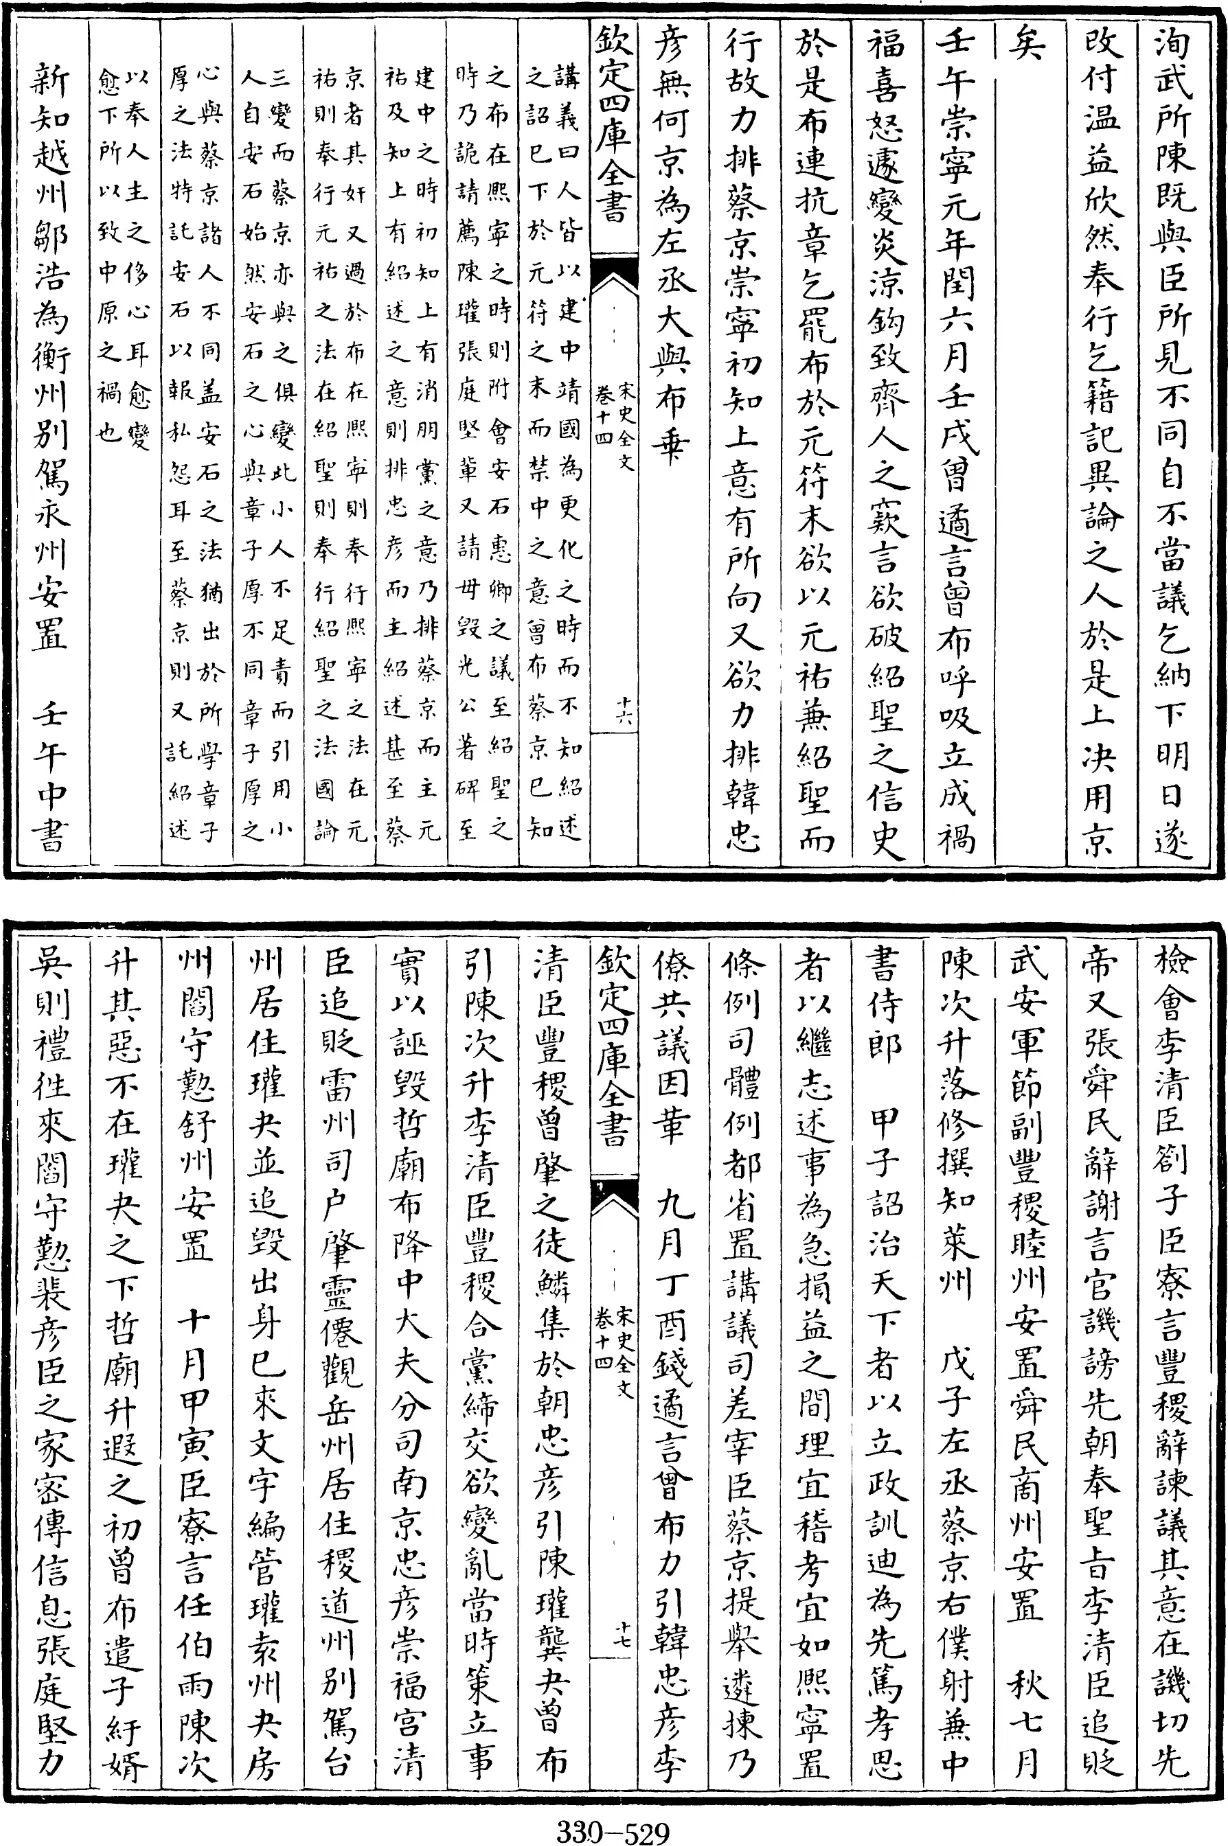 洵武所陳既與臣所見不同自不當議乞納下明日遂
改付溫益欣然奉行乞籍記異論之人於是上决用京
矣
壬午崇寧元年閏六月壬戌曾遹言曾布呼吸立成禍
福喜怒遽變炎涼鈎致齊人之窽言欲破紹聖之信史
於是布連抗章乞罷布於元符末欲以元祐兼紹聖而
行故力排蔡京崇寧初知上意有所向又欲力排韓忠
彦無何京為左丞大與布乗
欽定四庫全書
宋史全文
卷十四
十六
講義曰人皆以建中靖國為更化之時而不知紹述
之詔已下於元符之末而禁中之意曾布蔡京已知
之布在熙寧之時則附會安石惠卿之議至紹聖之
時乃詭請薦陳瓘張庭堅輩又請毋毀光公著碑至
建中之時初知上有消朋黨之意乃排蔡京而主元
祐及知上有紹述之意則排忠彦而主紹述甚至蔡
京者其奸又過於布在熙寧則奉行熙寧之法在元
祐則奉行元祐之法在紹聖則奉行紹聖之法國論
三變而蔡京亦與之俱變此小人不足責而引用小
人自安石始然安石之心與章子厚不同章子厚之
心與蔡京諸人不同盖安石之法猶出於所學章子
厚之法特託安石以報私怨耳至蔡京則又託紹述
以奉人主之侈心耳愈變
愈下所以致中原之禍也
新知越州鄒浩為衡州别駕永州安置　壬午中書
檢會李清臣劄子臣寮言豐稷辭諫議其意在譏切先
帝又張舜民辭謝言官譏謗先朝奉聖旨李清臣追貶
武安軍節副豐稷睦州安置舜民商州安置　秋七月
陳次升落修撰知萊州　戊子左丞蔡京右僕射兼中
書侍郎　甲子詔治天下者以立政訓迪為先篤孝思
者以繼志述事為急損益之間理宜稽考宜如熙寧置
條例司體例都省置講議司差宰臣蔡京提舉遴揀乃
僚共議因革　九月丁酉錢遹言曾布力引韓忠彦李
欽定四庫全書
宋史全文
卷十四
十七
清臣豐稷曾肇之徒鱗集於朝忠彦引陳瓘龔夬曾布
引陳次升李清臣豐稷合黨締交欲變亂當時策立事
實以誣毀哲廟布降中大夫分司南京忠彦崇福宫清
臣追貶雷州司户肇靈僊觀岳州居住稷道州别駕台
州居住瓘夬並追毀出身已來文字編管瓘袁州夬房
州閻守懃舒州安置　十月甲寅臣寮言任伯雨陳次
升其惡不在瓘夬之下哲廟升遐之初曾布遣子紆婿
吳則禮徃來閻守懃裴彦臣之家密傳信息張庭堅力
330—529